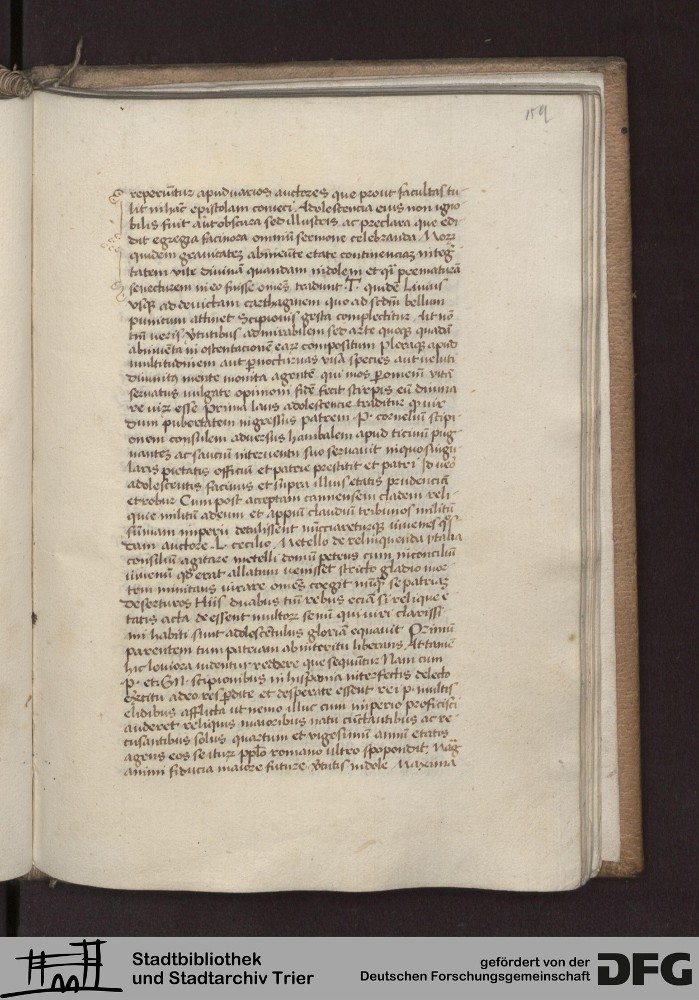 159
reperiu͂tur apud varios auctores que prout facultas tu-
lit in hac epistolam conieci. Adolescencia eius non igno
bilis fuit aut obscura sed illustris ac preclara que edi
dit egregia facinora omniu͂ sermone celebranda. Nam
quidem grauitatem ab ineunte etate continenciam integ
tatem vite diuina͂ quandam indolem et q͂ prematura͂
senectutem in eo fuisse om͂es tradunt. T. quide͂ Liuius
vsq͂ ad deuictam carthaginem quo ad sc͂dm bellum
punicum attinet Scipionis gesta complectitur. Fuit no͂
tm͂ veris v͂tutibus admirabilem sed arte quoq͂ quada͂
ab iuue͂ta in ostentacionem earum compositum pleraq͂ apud
multitudinem aut p nocturnas visa species aut veluti
diuinitus mente monita agente͂ qui mos p omnem vita͂
seruatus vulgate opinioni fide͂ fecit stirpis eu͂ diuina
re viru͂ esse. Prima laus adolescencie traditur q͂ vix
dum pubertatem ingressus patrem. P. corneliu͂ scipi
onem consulem aduersus hanibalem apud ticinu͂ pug
nantem ac sauciu͂ interuentu suo seruauit in quo singu
laris pietatis officiu͂ et patrie prestitit et patri. Id vero
adolescentis facinus et supra illius etatis prudencia͂
et robur. Cum post acceptam cannensem cladem reli
quie militu͂ ad eum et appiu͂ claudiu͂ tribunos militu͂
su͂mam imperii detulissent nu͂ciareturq͂ iuuenes q͂s
dam auctore. L. cecilio. Metello de relinquenda italia
consiliu͂ agitare metelli domu͂ petens cum in conciliu͂
iuuenu͂ q͂d erat allatum venisset stricto gladio mor
tem minitans iurare om͂es coegit nu͂q͂ se patriam
deserturos. Hiis duabus tm͂ rebus ecia͂ si relique e
tatis acta deessent multorum senu͂ qui viri clarissi
mi habiti sunt adolesce͂tulus gloria͂ equauit. Primu͂
parentem tum patriam ab interitu liberans. At tame͂
hic leuiora videntur reddere que sequu͂tur. Nam cum
P. et. GN. scipionibus in hispania interfectis delecto
exercitu adeo res p͂dite et desperate essent rei. p. multis
cladibus afflicta ut nemo illuc cum imperio proficisci
auderet reliquis maioribus natu cu͂ctantibus ac re-
cusantibus solus quartum et vigesimu͂ annu͂ etatis
agens eos se itur͂ pplo romano ultro spopondit. Mag͂
animi fiducia maiore future v͂tutis indole. Maxima
Stadtbibliothek
und Stadtarchiv Trier
gefördert von der
Deutschen Forschungsgemeinschaft
DFG